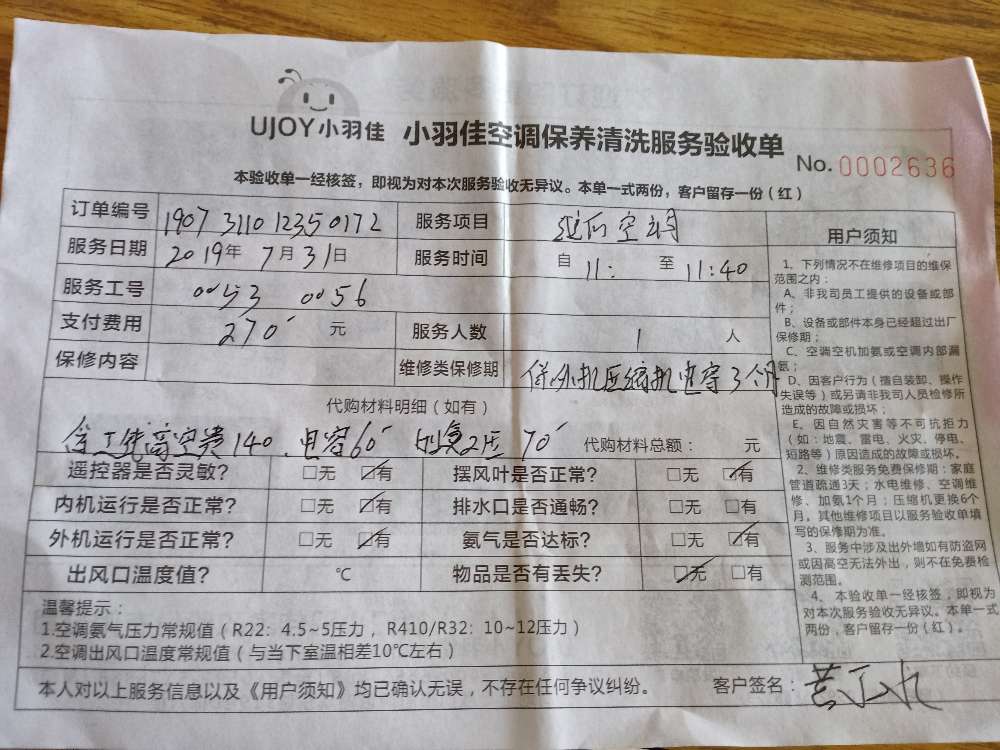 UJOY小羽佳 小羽佳空调保养清洗服务验收单
No.0002636
本验收单一经核签，即视为对本次服务验收无异议。本单一式两份，客户留存一份（红）
订单编号 1907 3110 1235 0172 服务项目 空调
服务日期 2019年 7月 31日 服务时间 自 11: 至 11:40
服务工号 0053 0056
支付费用 270 元 服务人数 1 人
保修内容 维修类保修期 保外机压缩机电容3个月
代购材料明细（如有）
含工钱高空费140、电容60 2压 70 代购材料总额： 元
遥控器是否灵敏? □无 ☑有 摆风叶是否正常? □无 ☑有
内机运行是否正常? □无 ☑有 排水口是否通畅? □无 □有
外机运行是否正常? □无 ☑有 氨气是否达标? □无 ☑有
出风口温度值? ℃ 物品是否有丢失? ☑无 □有
温馨提示：
1.空调氨气压力常规值（R22：4.5~5压力，R410/R32：10~12压力）
2.空调出风口温度常规值（与当下室温相差10℃左右）
本人对以上服务信息以及《用户须知》均已确认无误，不存在任何争议纠纷。 客户签名：
用户须知
1、下列情况不在维修项目的维保
范围之内：
A、非我司员工提供的设备或部
件；
B、设备或部件本身已经超过出厂
保修期；
C、空调空机加氨或空调内部漏
氨；
D、因客户行为（擅自装卸、操作
失误等）或另请非我司人员检修所
造成的故障或损坏；
E、因自然灾害等不可抗拒力
（如：地震、雷电、火灾、停电、
短路等）原因造成的故障或损坏。
2、维修类服务免费保修期：家庭
管道疏通3天；水电维修、空调维
修、加氨1个月；压缩机更换6个
月。其他维修项目以服务验收单填
写的保修期为准。
3、服务中涉及出外墙如有防盗网
或因高空无法外出，则不在免费检
测范围。
4、本验收单一经核签，即视为
对本次服务验收无异议。本单一式
两份，客户留存一份（红）。